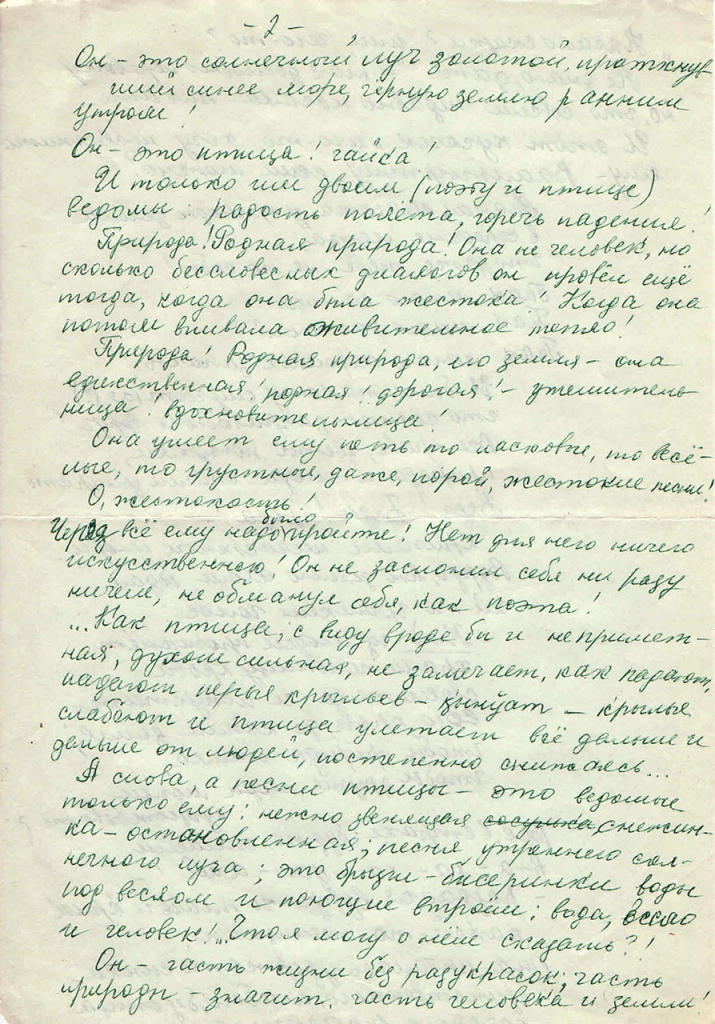 - 2 -
Он - это солнечный луч золотой, проткнув-
ший синее море, чёрную землю ранним
утром!
Он - это птица! чайка!
И только им двоим (поэту и птице)
ведомы радость полёта, горечь падения!
Природа! Родная природа! Она не человек, но
сколько бессловесных диалогов он провёл ещё
тогда, когда она была жестока! Когда она
потом вливала живительное тепло!
Природа! Родная природа, его земля - она
единственная! родная! дорогая! - утешитель-
ница! вдохновительница!
Она умеет ему петь то ласковые, то весё-
лые, то грустные, даже, порой, жестокие песни!
О, жестокость!
Через всё ему надо было пройти! Нет для него ничего
искусственного! Он не заслонил себя ни разу
ничем, не обманул себя, как поэта!
... Как птица, с виду вроде бы и непримет-
ная, духом сильная, не замечает, как падают,
падают перья крыльев - - крылья
слабеют и птица улетает всё дальше и
дальше от людей, постепенно снижаясь...
А слова, а песни птицы - это ведомые
только ему: нежно звенящая сосулька, снежин-
ка - остановленная; песня утреннего сол-
нечного луча; это брызги - бисеринки воды
под веслом и поющие втроём: вода, весло
и человек!.. Что я могу о нём сказать?!
Он - часть жизни без радукрасок, часть
природы - значит, часть человека и земли!